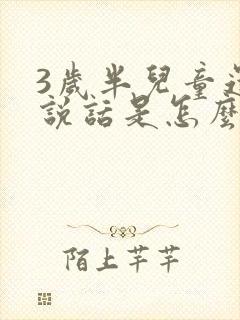 3歲半兒童還
說話是怎麼
陌上芊芊